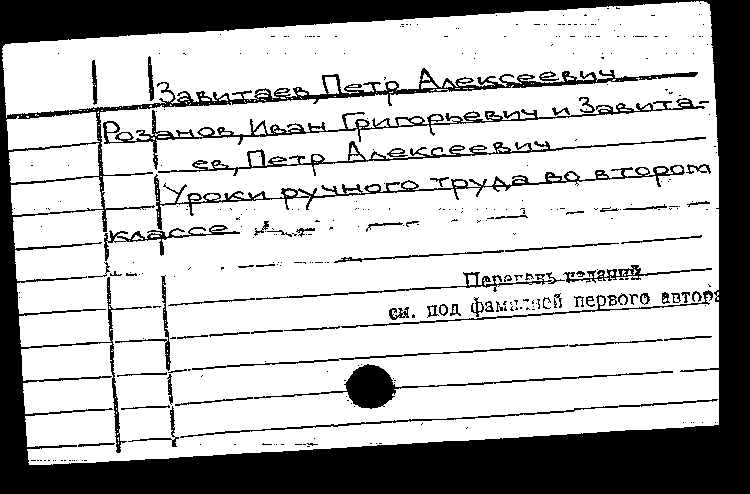 Завитаев, Петр Алексеевич
Розанов, Иван Григорьевич и Завита-
ев, Петр Алексеевич
Уроки ручного труда во втором
классе
Перечень изданий
см. под фамилией первого автора